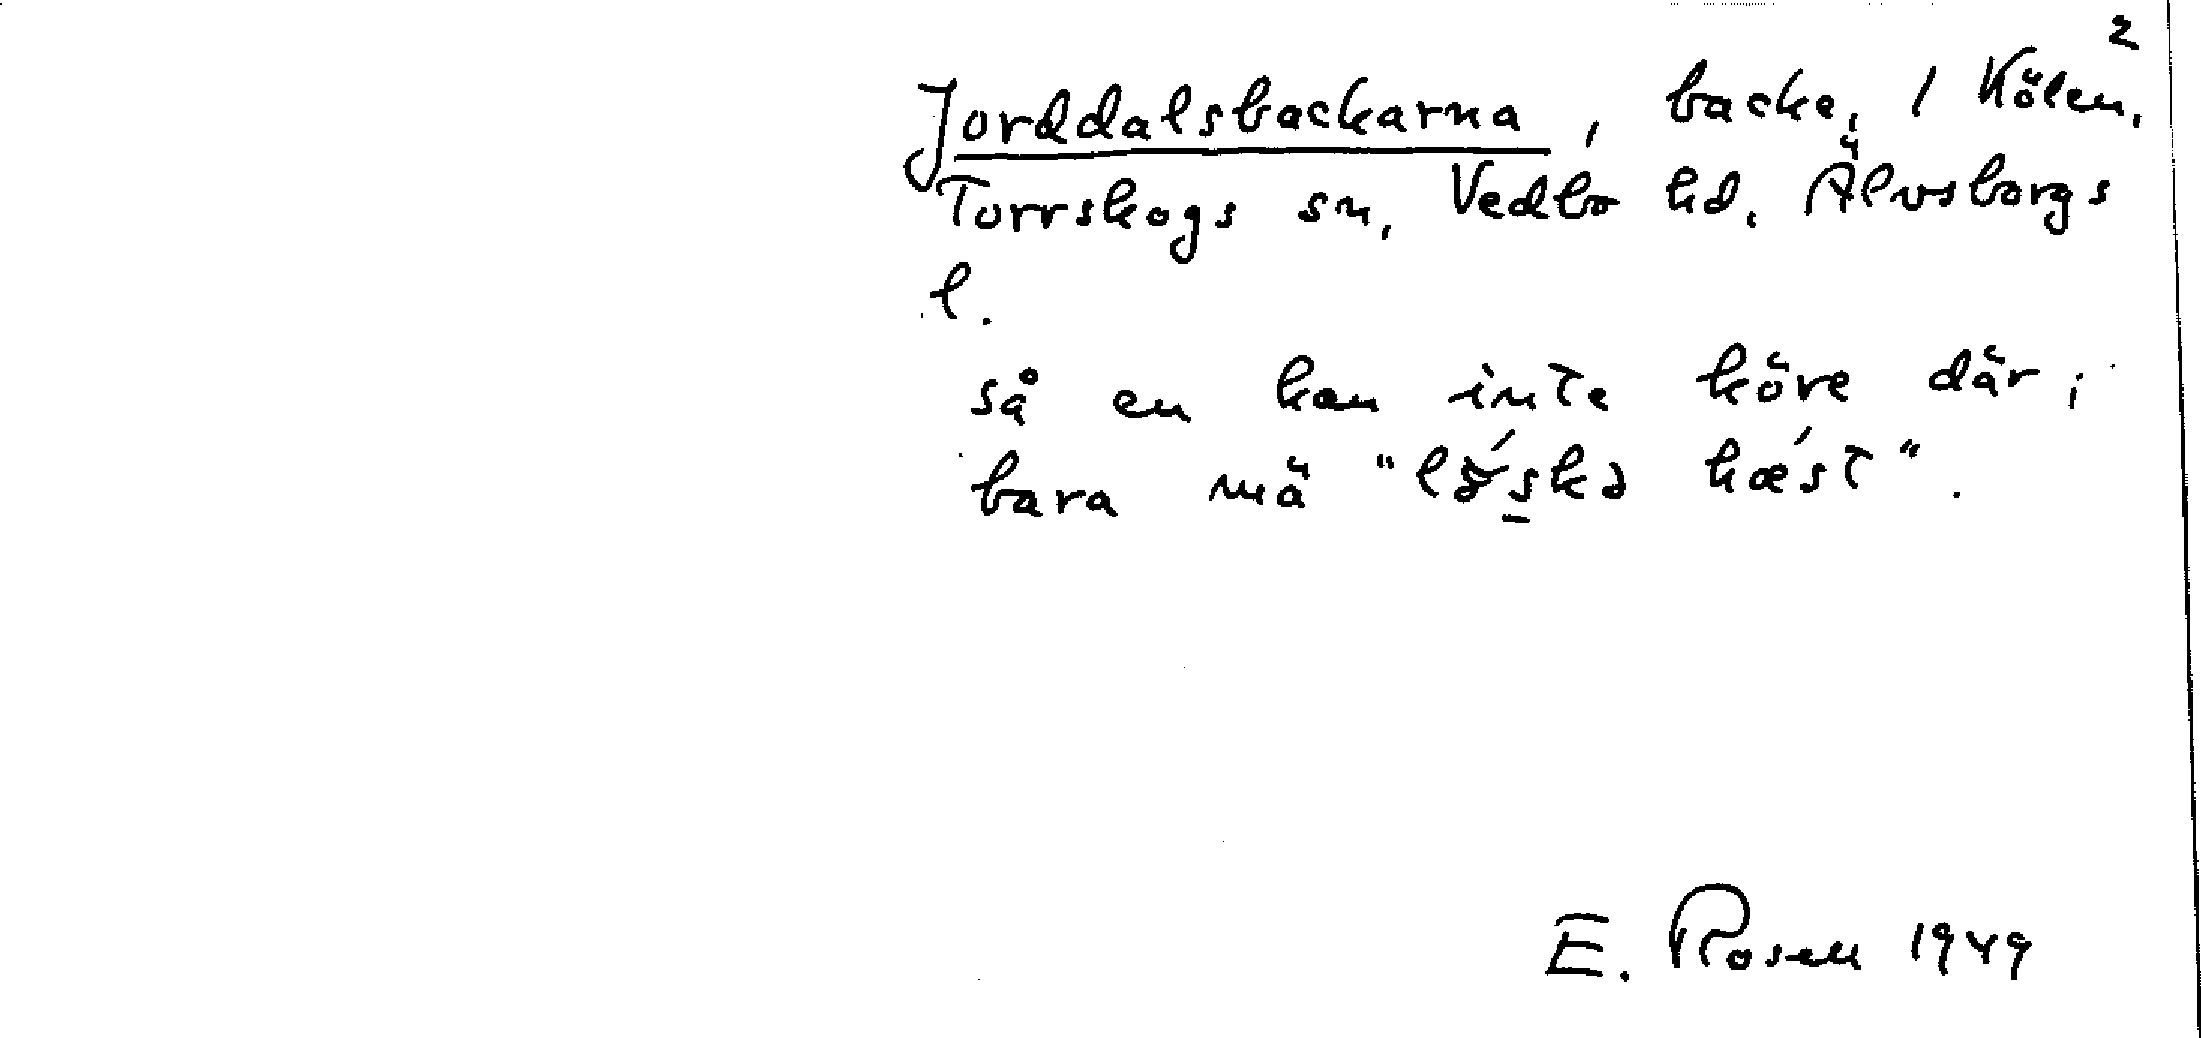 2
Jorddalsbackarna, backe, 1 Kölen,
Torrskogs sn, Vedbo hd. Älvsborgs
l.
så en kan inte köre där;
bara mä " hæ´st".
E. Rosell 1949